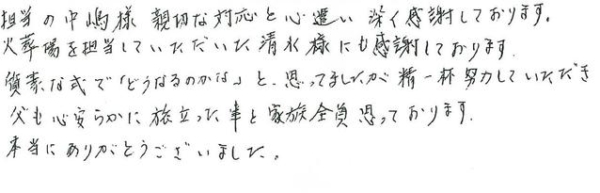 担当の中嶋様 親切な対応と心遣い 深く感謝しております。
火葬場を担当していただいた清水様にも感謝しております
質素な式で「どうなるのかな」と、思ってましたが精一杯努力していただき
父も心安らかに旅立った事と家族全員思っております.
本当にありがとうございました。